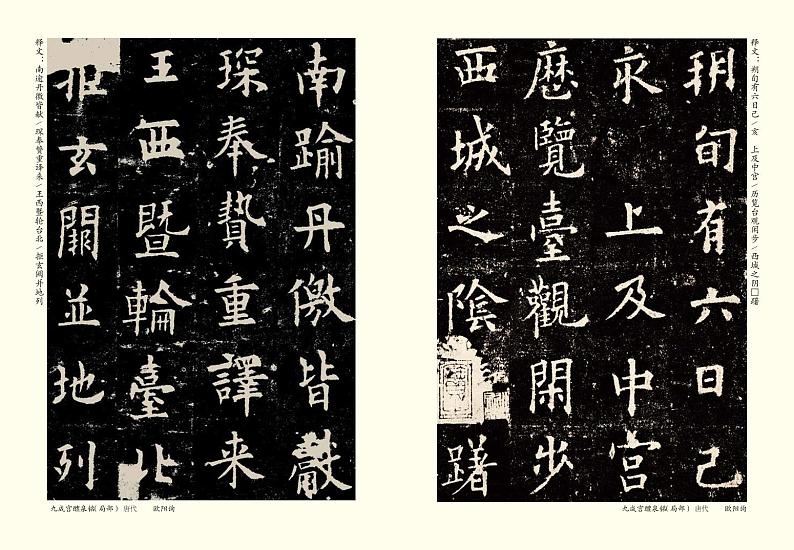 南踰丹徼皆獻
琛奉贄重譯来
王西暨輪臺北
拒玄闕並地列
释文：南逾丹徼皆献/琛奉贽重译来/王西暨轮台北/拒玄阙并地列
九成宫醴泉铭(局部) 唐代 欧阳询
释文：朔旬有六日己/亥 上及中宫/历览台观闲步/西城之阴□躇
朔旬有六日己
亥 上及中宫
歷覽臺觀閑步
西城之陰 躇
九成宫醴泉铭(局部) 唐代 欧阳询